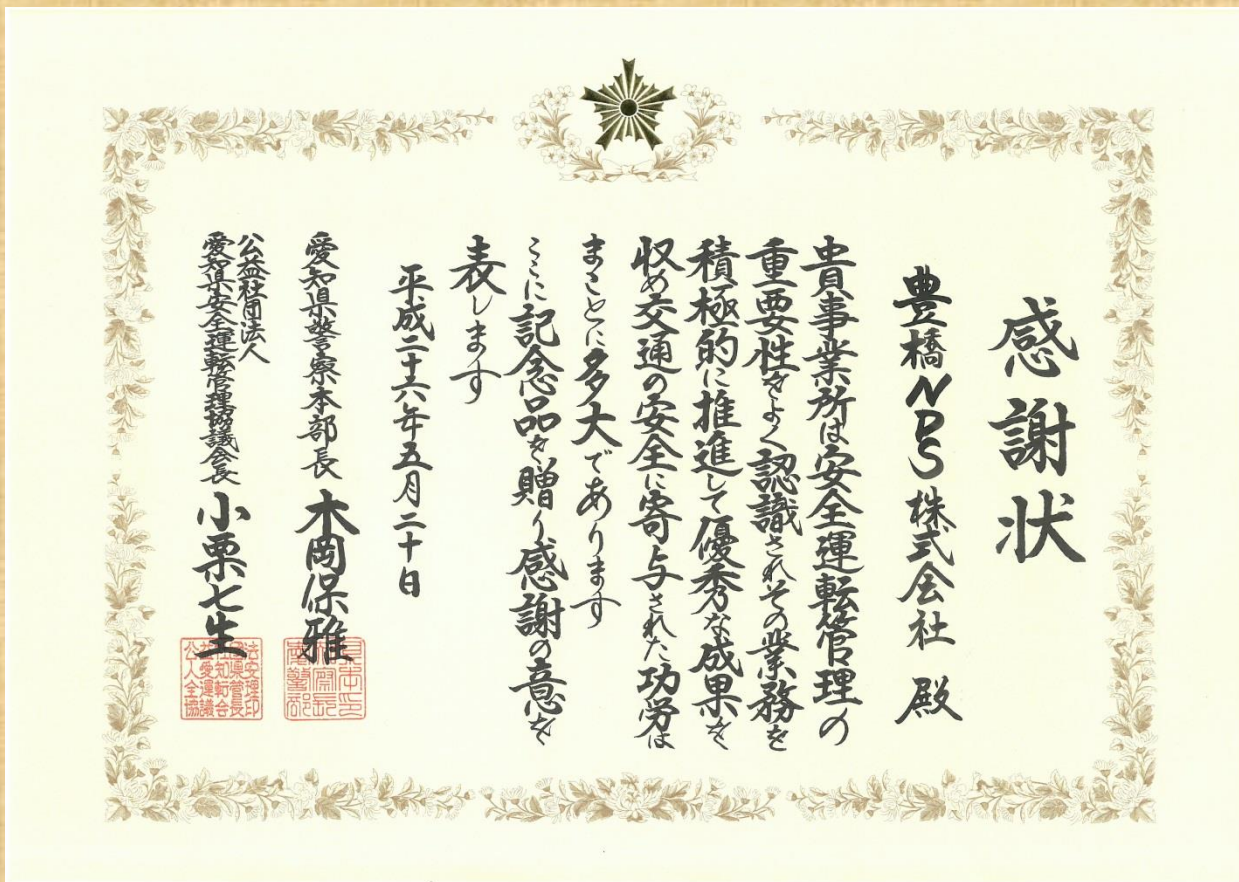 感謝状
豊橋NDS株式会社 殿
貴事業所は安全運転管理の
重要性をよく認識されその業務を
積極的に推進して優秀な成果を
収め交通の安全に寄与された功労は
まことに多大であります
ここに記念品を贈り感謝の意を
表します
平成二十六年五月二十日
愛知県警察本部長 木岡保雅
公益社団法人
愛知県安全運転管理協議会長 小栗七生